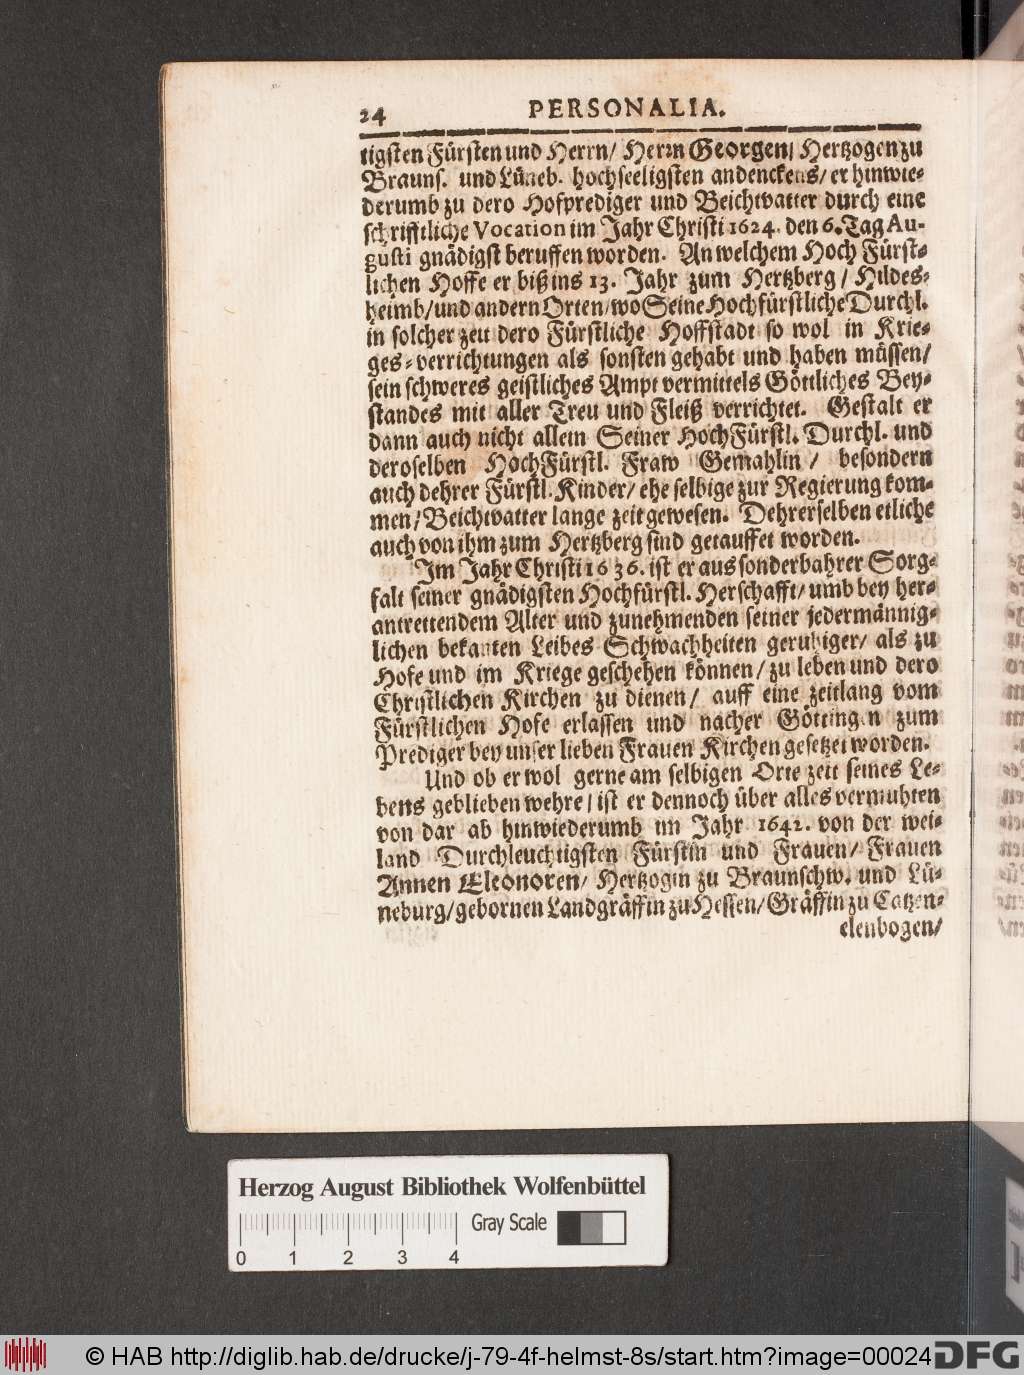 24 PERSONALIA.
tigsten Fürsten und Herrn/ Herrn Georgen/ Hertzogen zu
Brauns. und Lüneb. hochseeligsten andenckens/ er hinwie-
derumb zu dero Hofprediger und Beichtvatter durch eine
schrifftliche Vocation im Jahr Christi 1624. den 6. Tag Au-
gusti gnädigst beruffen worden. An welchem Hoch Fürst-
lichen Hoffe er biß ins 13. Jahr zum Hertzberg/ Hildes-
heimb/ und andern Orten/ wo Seine Hochfürstliche Durchl.
in solcher zeit dero Fürstliche Hoffstadt so wol in Krie-
ges-verrichtungen als sonsten gehabt und haben müssen/
sein schweres geistliches Ampt vermittels Göttliches Bey-
standes mit aller Treu und Fleiß verrichtet. Gestalt er
dann auch nicht allein Seiner HochFürstl. Durchl. und
deroselben HochFürstl. Fraw Gemahlin/ besondern
auch dehrer Fürstl. Kinder/ ehe selbige zur Regierung kom-
men/ Beichtvatter lange zeit gewesen. Dehrerselben etliche
auch von ihm zum Hertzberg sind getauffet worden.
Im Jahr Christi 1636. ist er aus sonderbahrer Sorg-
falt seiner gnädigsten Hochfürstl. Herschafft/ umb bey her-
antrettendem Alter und zunehmenden seiner jedermännig-
lichen bekanten Leibes Schwachheiten geruhiger/ als zu
Hofe und im Kriege geschehen können/ zu leben und dero
Christlichen Kirchen zu dienen/ auff eine zeitlang vom
Fürstlichen Hofe erlassen und nacher Göttingen zum
Prediger bey unser lieben Frauen Kirchen gesetzet worden.
Und ob er wol gerne am selbigen Orte zeit seines Le-
bens geblieben wehre/ ist er dennoch über alles vermuhten
von dar ab hinwiederumb im Jahr 1642. von der wei-
land Durchleuchtigsten Fürstin und Frauen/ Frauen
Annen Eleonoren/ Hertzogin zu Braunschw. und Lü-
neburg/ gebornen Landgräffin zu Hessen/ Gräffin zu Catzen-
elenbogen/
Herzog August Bibliothek Wolfenbüttel
Gray Scale
0 1 2 3 4
© HAB http://diglib.hab.de/drucke/j-79-4f-helmst-8s/start.htm?image=00024 DFG